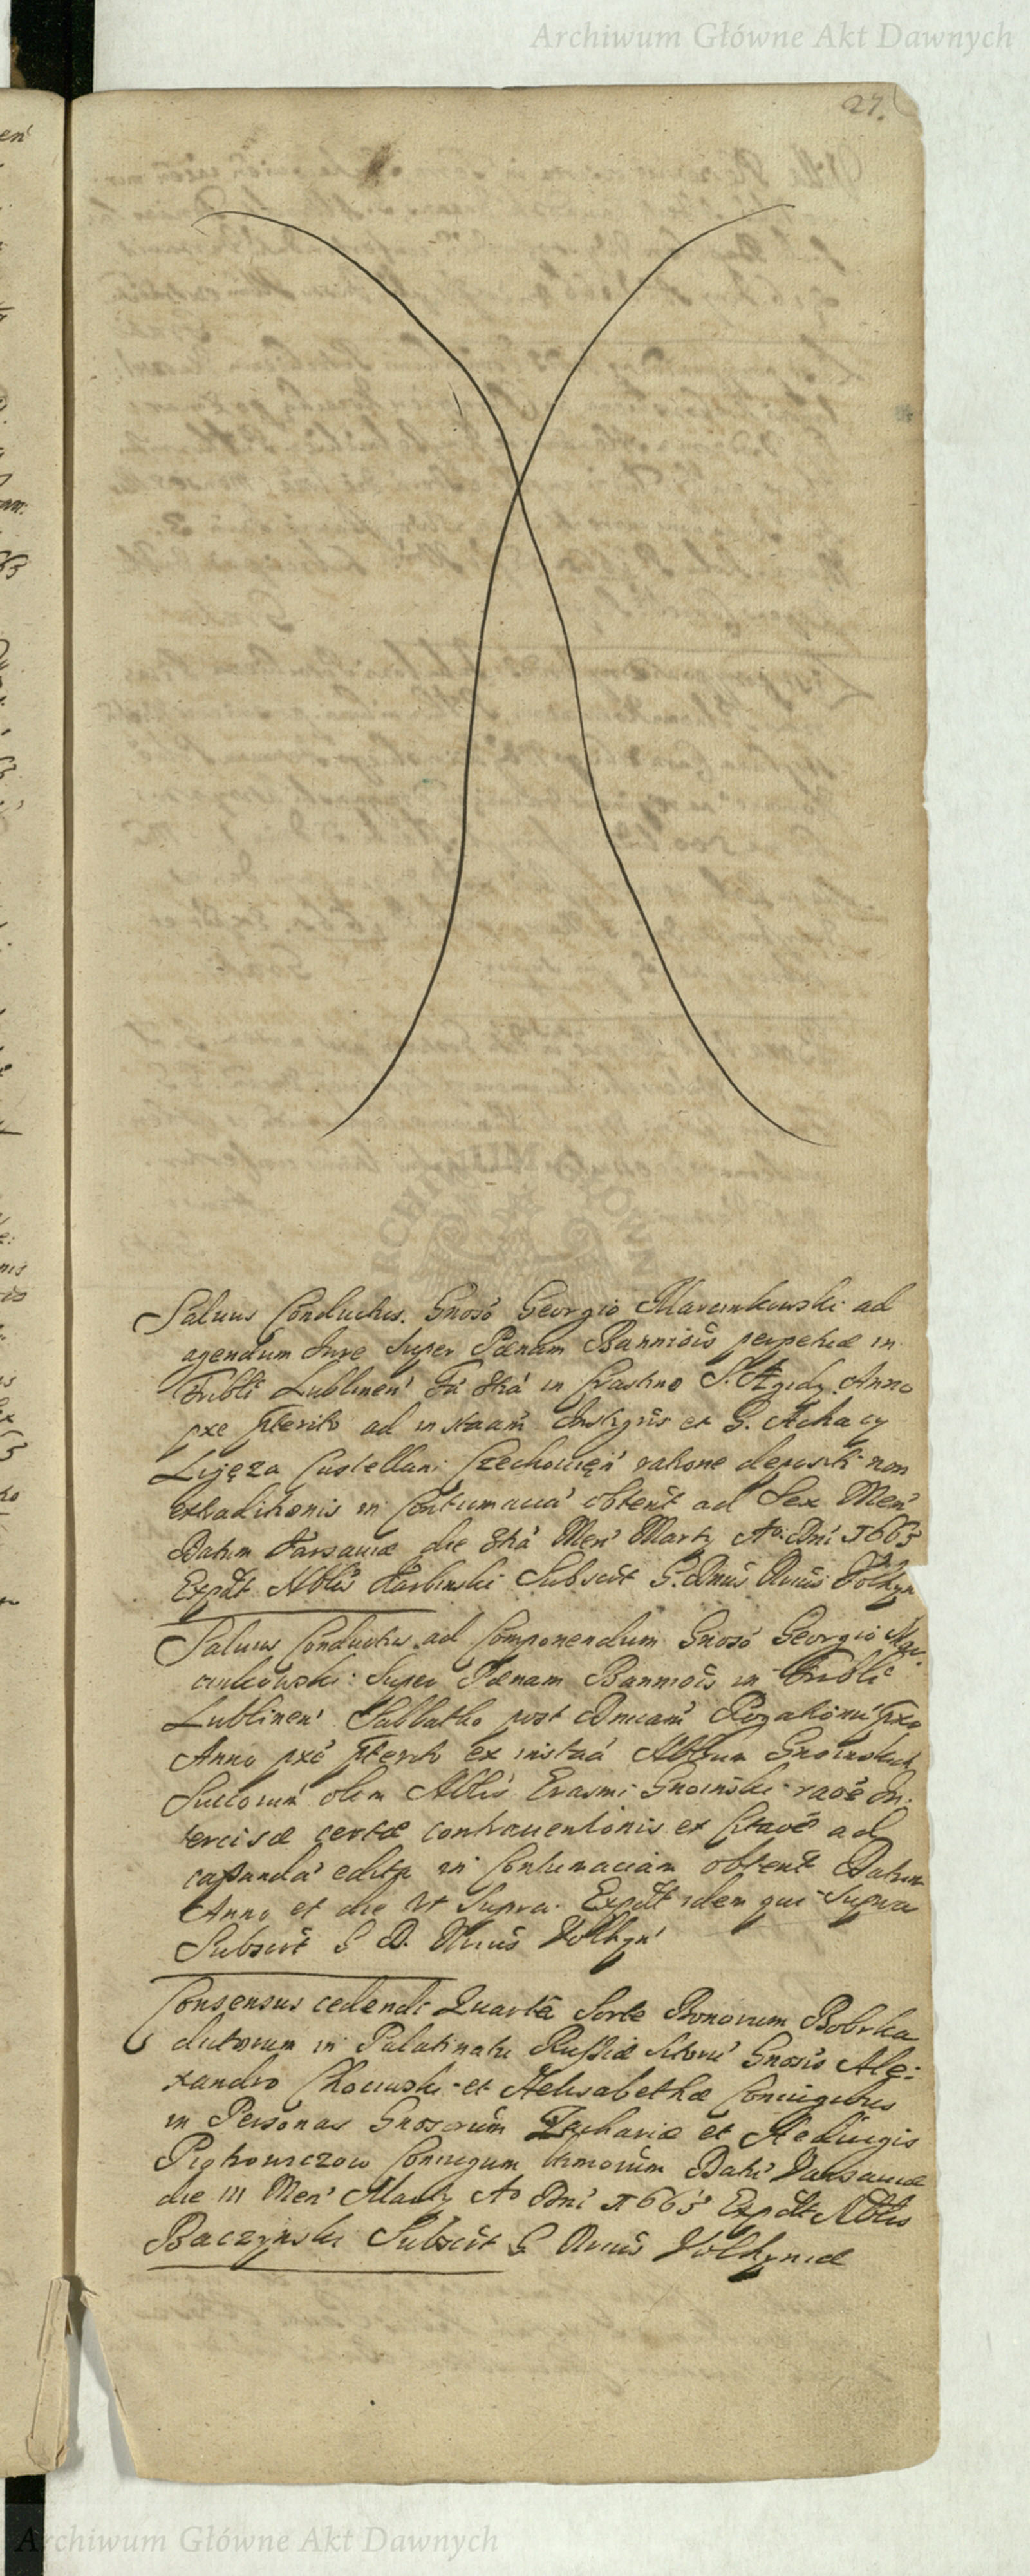 Archiwum Główne Akt Dawnych
27.
Salvus Conductus. Gnoso Georgio Marcinkowski ad
agendum Iure super Pœnam Banniois perpetuæ in
Tribli Lublinen' Fa 8va in Crastino S. Ægidy Anno
pxe pterito ad instaam Instigris et G. Achacy
Ligęza Castellani Czechowień ratione depositi non
extraditionis in Contumacia' obtent ad Sex Men'
Datum Varsaviæ die Men' Marty Ao. Dni 1663
Expdt Nblis Karbinski Subscrt G. Dnus Vollhyn
Salvus Conductus ad Componendum Gnoso Georgio Mar
cinkowski super Pœnam Bannióis in Tribli
Lublinen' Sabbatho post Dnicam Rogationu' pxa
Anno pxe pterito ex instaa Nblium Gnoinskich
Succorum olim Nblis Erasmi Gnoiński raoe In:
tercisæ certæ contraventionis et Citaoe ad
edita in Contumaciam obtent Datum
Anno et die Ut Supra. Expdt idem qui Supra
Subscrt G D. Vollhyn'
Consensus cedendi Quarta Sorte Bonorum Bobrka
dictorum in Palatinatu Russiæ sitoru' Gnosis Ale:
xandro et Helisabethæ Coniugibus
in Personas Gnosorum Zachariæ et Heduigis
Coniugum Dati' Varsaviæ
die III Men' Marty Ao Dni 1663 Expdt Nblis
Baczynski Subscrt G Vollhyniæ
Archiwum Główne Akt Dawnych